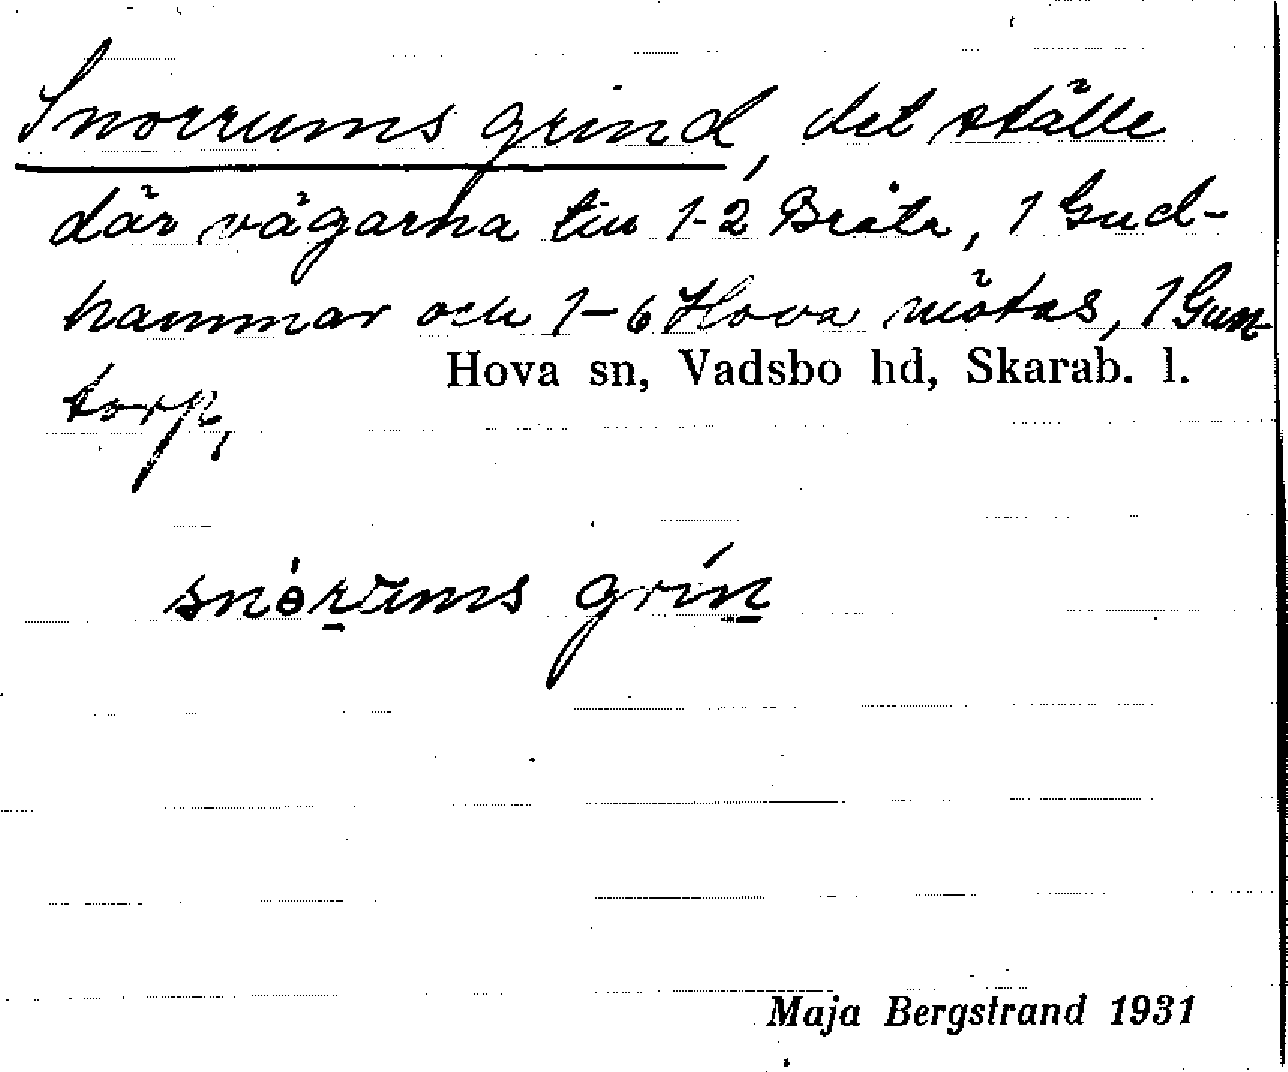 Snorrums grind, det ställe
där vägarna till 1-2 Bråta, 1 Gud-
hammar och 1-6 Hova mötas, 1 Gun
torp,
Hova sn, Vadsbo hd, Skarab. l.
grín
Maja Bergstrand 1931